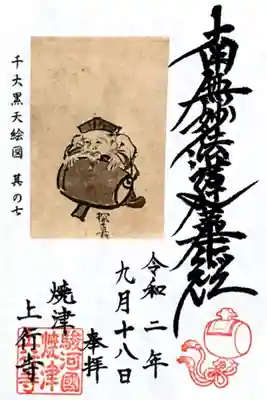 南無妙法蓮華経
令和二年
九月十八日
奉拝
焼津
上行寺
駿河國
焼津
千大黒天絵図 其の七